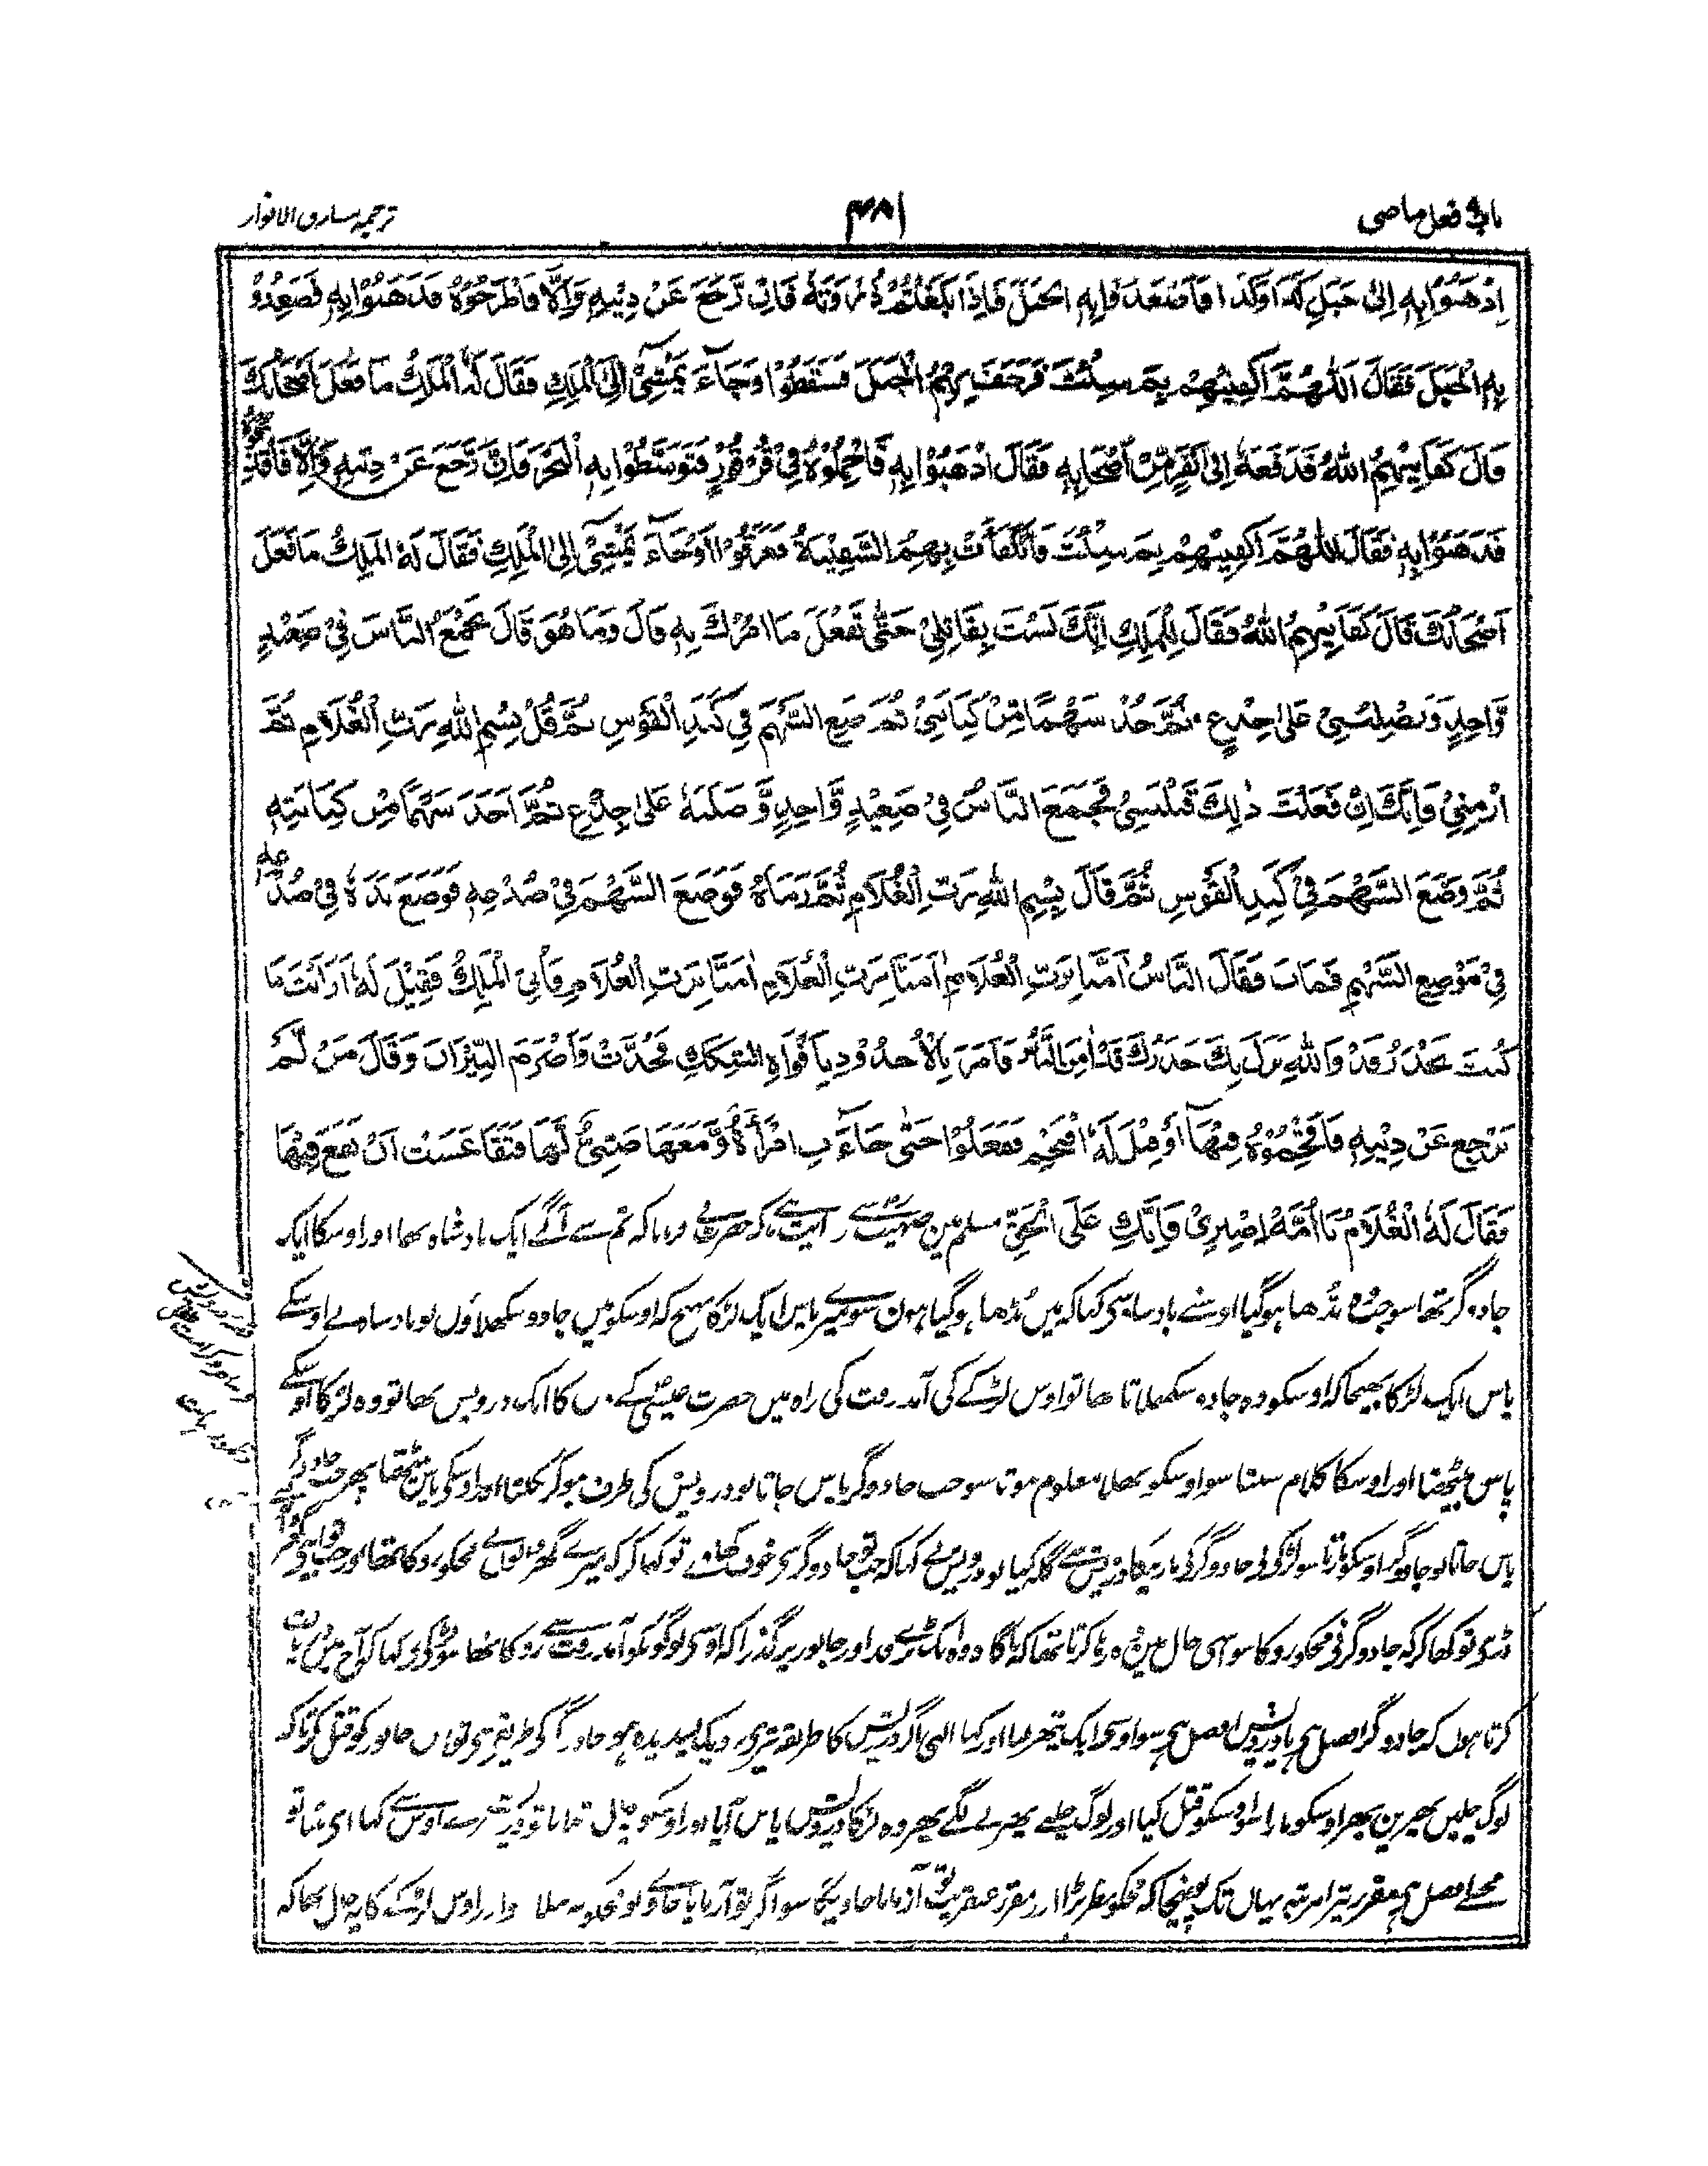 باب فعل ماضی
۴۸۱
ترجمہ مشارق الانوار
اِذْهَبُوْا بِهٖ اِلٰى جَبَلِ كَذَا وَكَذَا فَاصْعَدُوْا بِهِ الْجَبَلَ فَاِذَا بَلَغْتُمْ ذُرْوَتَهٗ فَاِنْ رَّجَعَ عَنْ دِيْنِهٖ وَاِلَّا فَاطْرَحُوْهُ فَذَهَبُوْا بِهٖ فَصَعِدُوْا
بِهِ الْجَبَلَ فَقَالَ اَللّٰهُمَّ اكْفِنِيْهِمْ بِمَ شِئْتَ فَرَجَفَ بِهِمُ الْجَبَلَ فَسَقَطُوْا وَجَآءَ يَمْشِيْٓ اِلَى الْمَلِكِ فَقَالَ لَهُ الْمَلِكُ مَا فَعَلَ اَصْحَابُكَ
قَالَ كَفَانِيْهِمُ اللّٰهُ فَدَفَعَهٗ اِلٰى نَفَرٍ مِّنْ اَصْحَابِهٖ فَقَالَ اذْهَبُوْا بِهٖ فَاحْمِلُوْهُ فِيْ قُرْقُوْرٍ فَتَوَسَّطُوْا بِهِ الْبَحْرَ فَاِنْ رَّجَعَ عَنْ دِيْنِهٖ وَاِلَّا فَاقْذِفُوْهُ
فَذَهَبُوْا بِهٖ فَقَالَ اللّٰهُمَّ اكْفِنِيْهِمْ بِمَ شِئْتَ فَانْكَفَأَتْ بِهِمُ السَّفِيْنَةُ فَغَرِقُوْا وَجَآءَ يَمْشِيْٓ اِلَى الْمَلِكِ فَقَالَ لَهُ الْمَلِكُ مَا فَعَلَ
اَصْحَابُكَ قَالَ كَفَانِيْهِمُ اللّٰهُ فَقَالَ لِلْمَلِكِ اِنَّكَ لَسْتَ بِقَاتِلِيْ حَتّٰى تَفْعَلَ مَا اٰمُرُكَ بِهٖ قَالَ وَمَا هُوَ قَالَ تَجْمَعُ النَّاسَ فِيْ صَعِيْدٍ
وَّاحِدٍ وَتَصْلِبُنِيْ عَلٰى جِذْعٍ ثُمَّ خُذْ سَهْمًا مِّنْ كِنَانَتِيْ ثُمَّ ضَعِ السَّهْمَ فِيْ كَبِدِ الْقَوْسِ ثُمَّ قُلْ بِسْمِ اللّٰهِ رَبِّ الْغُلَامِ ثُمَّ
ارْمِنِيْ فَاِنَّكَ اِنْ فَعَلْتَ ذٰلِكَ قَتَلْتَنِيْ فَجَمَعَ النَّاسَ فِيْ صَعِيْدٍ وَّاحِدٍ وَّصَلَبَهٗ عَلٰى جِذْعٍ ثُمَّ اَخَذَ سَهْمًا مِّنْ كِنَانَتِهٖ
ثُمَّ وَضَعَ السَّهْمَ فِيْ كَبِدِ الْقَوْسِ ثُمَّ قَالَ بِسْمِ اللّٰهِ رَبِّ الْغُلَامِ ثُمَّ رَمَاهُ فَوَقَعَ السَّهْمُ فِيْ صُدْغِهٖ فَوَضَعَ يَدَهٗ فِيْ صُدْغِهٖ
فِيْ مَوْضِعِ السَّهْمِ فَمَاتَ فَقَالَ النَّاسُ اٰمَنَّا بِرَبِّ الْغُلَامِ اٰمَنَّا بِرَبِّ الْغُلَامِ اٰمَنَّا بِرَبِّ الْغُلَامِ فَاُتِيَ الْمَلِكُ فَقِيْلَ لَهٗ اَرَاَيْتَ مَا
كُنْتَ تَحْذَرُ قَدْ وَاللّٰهِ نَزَلَ بِكَ حَذَرُكَ قَدْ اٰمَنَ النَّاسُ فَاَمَرَ بِالْاُخْدُوْدِ بِاَفْوَاهِ السِّكَكِ فَخُدَّتْ وَاَضْرَمَ النِّيْرَانَ وَقَالَ مَنْ لَّمْ
يَرْجِعْ عَنْ دِيْنِهٖ فَاَقْحِمُوْهُ فِيْهَآ اَوْ قِيْلَ لَهٗ اقْتَحِمْ فَفَعَلُوْا حَتّٰى جَآءَتِ امْرَأَةٌ وَّمَعَهَا صَبِيٌّ لَّهَا فَتَقَاعَسَتْ اَنْ تَقَعَ فِيْهَا
فَقَالَ لَهَا الْغُلَامُ يَا اُمَّهْ اصْبِرِيْ فَاِنَّكِ عَلَى الْحَقِّ مسلم مین صہیب سے روایت ہے کہ حضرت نے فرمایا کہ تم سے آگے ایک بادشاہ تھا اور اوسکا ایک
جادوگر تھا سو جب وہ بڈھا ہو گیا اوسنے بادشاہ سے کہا کہ میں بڈھا ہو گیا ہون سو میرے پاس ایک لڑکا بھیج کہ اوسکو میں جادو سکھلاؤں تو بادشاہ نے اوسکے
پاس ایک لڑکا بھیجا کہ اوسکو وہ جادو سکھلاتا تھا تو اوس لڑکے کی آمد رفت کی راہ میں حضرت عیسیٰ کے دین کا ایک درویش تھا تو وہ لڑکا اوسکے
پاس بیٹھتا اور اوسکا کلام سنتا سو اوسکو بھلا معلوم ہوتا سو جب جادوگر پاس جاتا تو درویش کی طرف ہو کر نکلتا اور اوسکے پاس بیٹھتا پھر جب جادوگر کے
پاس جاتا تو جادوگر اوسکو مارتا سو لڑکے نے جادوگر کی مار کا درویش سے گلہ کیا تو درویش نے کہا کہ جب تو جادوگر سے خوف کھاوے تو کہا کر کہ میرے گھر والوں نے مجکو روکا تھا اور جب
ڈرے تو کہا کر کہ جادوگر نے مجکو روکا سو اسی حال مین وہ رہا کرتا تھا کہ ناگاہ وہ ایک بڑے قد اور جانور پر گذرا کہ اوسنے لوگونکو آمد رفت سے روکا تھا سو لڑکے نے کہا کہ آج میں دریافت
کرتا ہوں کہ جادوگر افضل ہے یا درویش افضل ہے سو اوسنے ایک پتھر لیا اور کہا الہی اگر درویش کا طریقہ تیرے نزدیک پسندیدہ ہو جادوگر کے طریقے سے تو اس جانور کو قتل کر تاکہ
لوگ چلیں پھرین پھر اوسکو مارا سو اوسکو قتل کیا اور لوگ چلنے پھرنے لگے پھر وہ لڑکا درویش پاس آیا اور اوسکو یہ حال بتایا تو درویش نے اوس سے کہا اے بیٹا تو
مجسے افضل ہے مقرر تیرا مرتبہ یہاں تک پہنچا کہ مجکو نظر پڑا اور مقرر عنقریب تو آزمایا جاویگا سو اگر تو آزمایا جاوے تو مجکو نہ بتلانا اور اوس لڑکے کا یہ حال تھا کہ